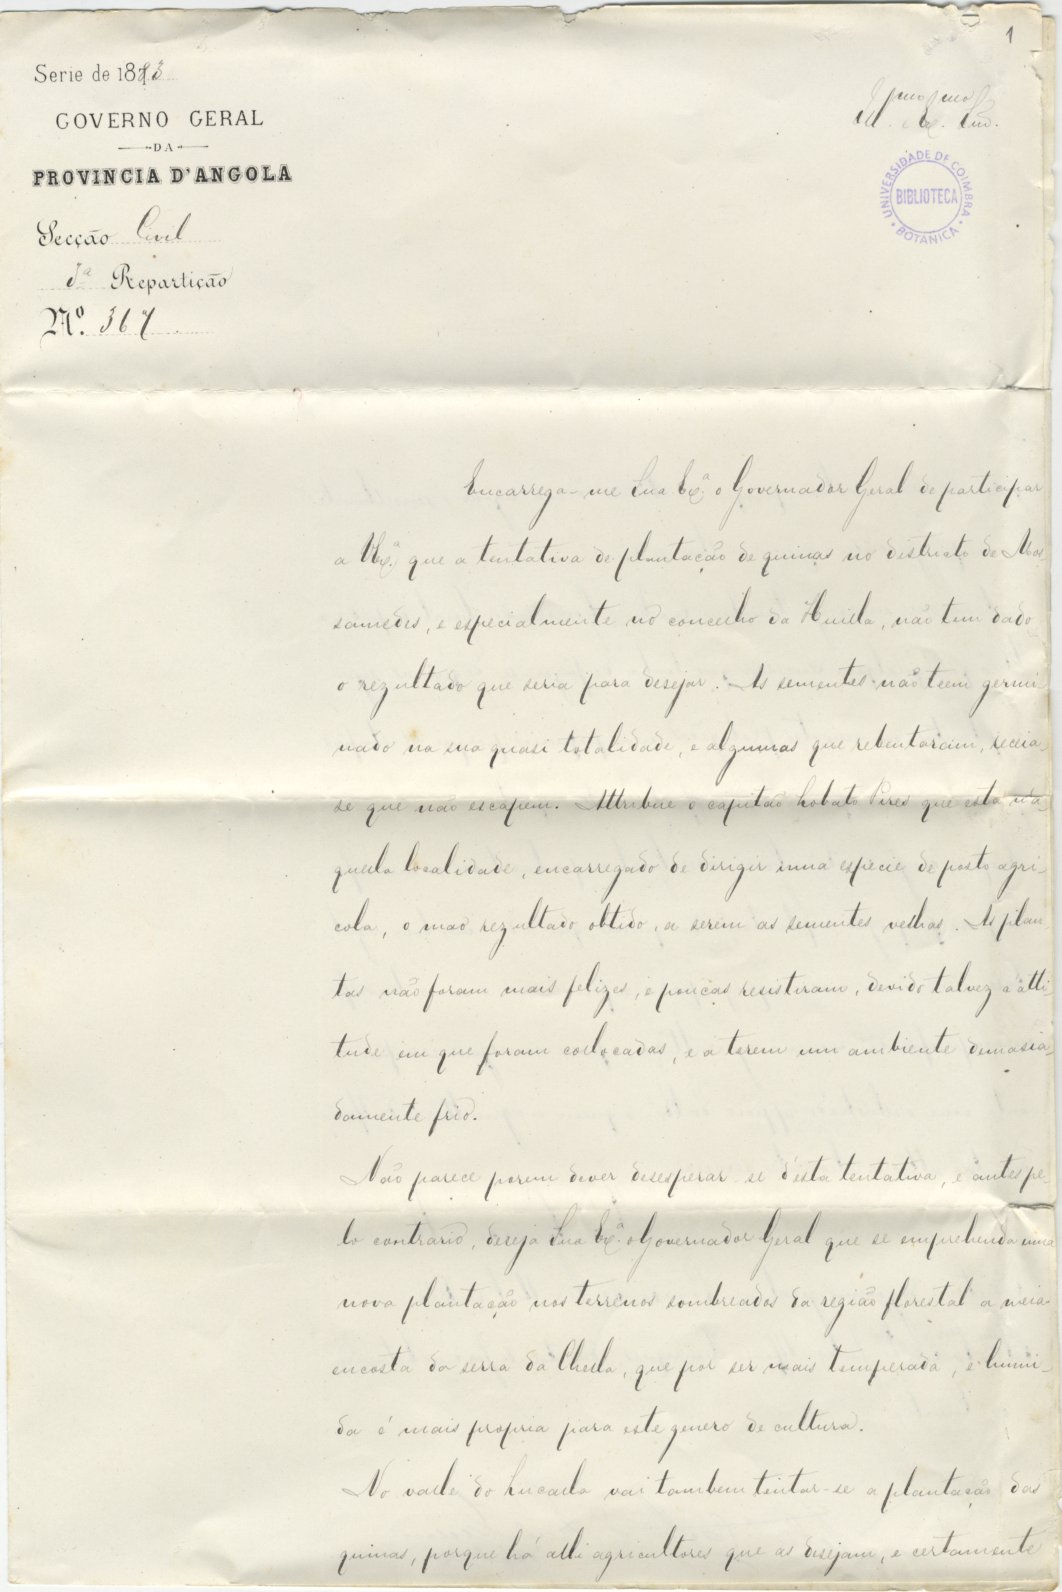 1
Serie de 1883
GOVERNO GERAL
DA
PROVINCIA D'ANGOLA
Illmo. Exmo. Snr.
UNIVERSIDADE DE COIMBRA
BIBLIOTECA
BOTANICA
Secção Civil
3ª Repartição
Nº. 367
Encarrega-me Sua Exª. o Governador Geral de participar
a VExª. que a tentativa de plantação de quinas no districto de Mos-
samedes, e especialmente no concelho da Huilla, não tem dado
o rezultado que seria para desejar. As sementes não teem germi-
nado na sua quasi totalidade, e algumas que rebentaram, receia-
se que não escapem. Attribue o capitão Lobato Pires que está n'a-
quella localidade, encarregado de dirigir uma especie de posto agri-
cola, o mao rezultado obtido, a serem as sementes velhas. As plan-
tas não foram mais felizes, e poucas resistiram, devido talvez a alti-
tude em que foram collocadas, e a terem um ambiente demasia-
damente frio.
Não parece porem dever desesperar-se d'esta tentativa, e antes pe-
lo contrario, deseja Sua Exª. o Governador Geral que se emprehenda uma
nova plantação nos terrenos sombreados da região florestal a meia-
encosta da serra da Chella, que por ser mais temperada, e humi-
da é mais propria para este genero de cultura.
No valle do Lucalla vai tambem tentar-se a plantação das
quinas, porque há alli agricultores que as desejam, e certamente